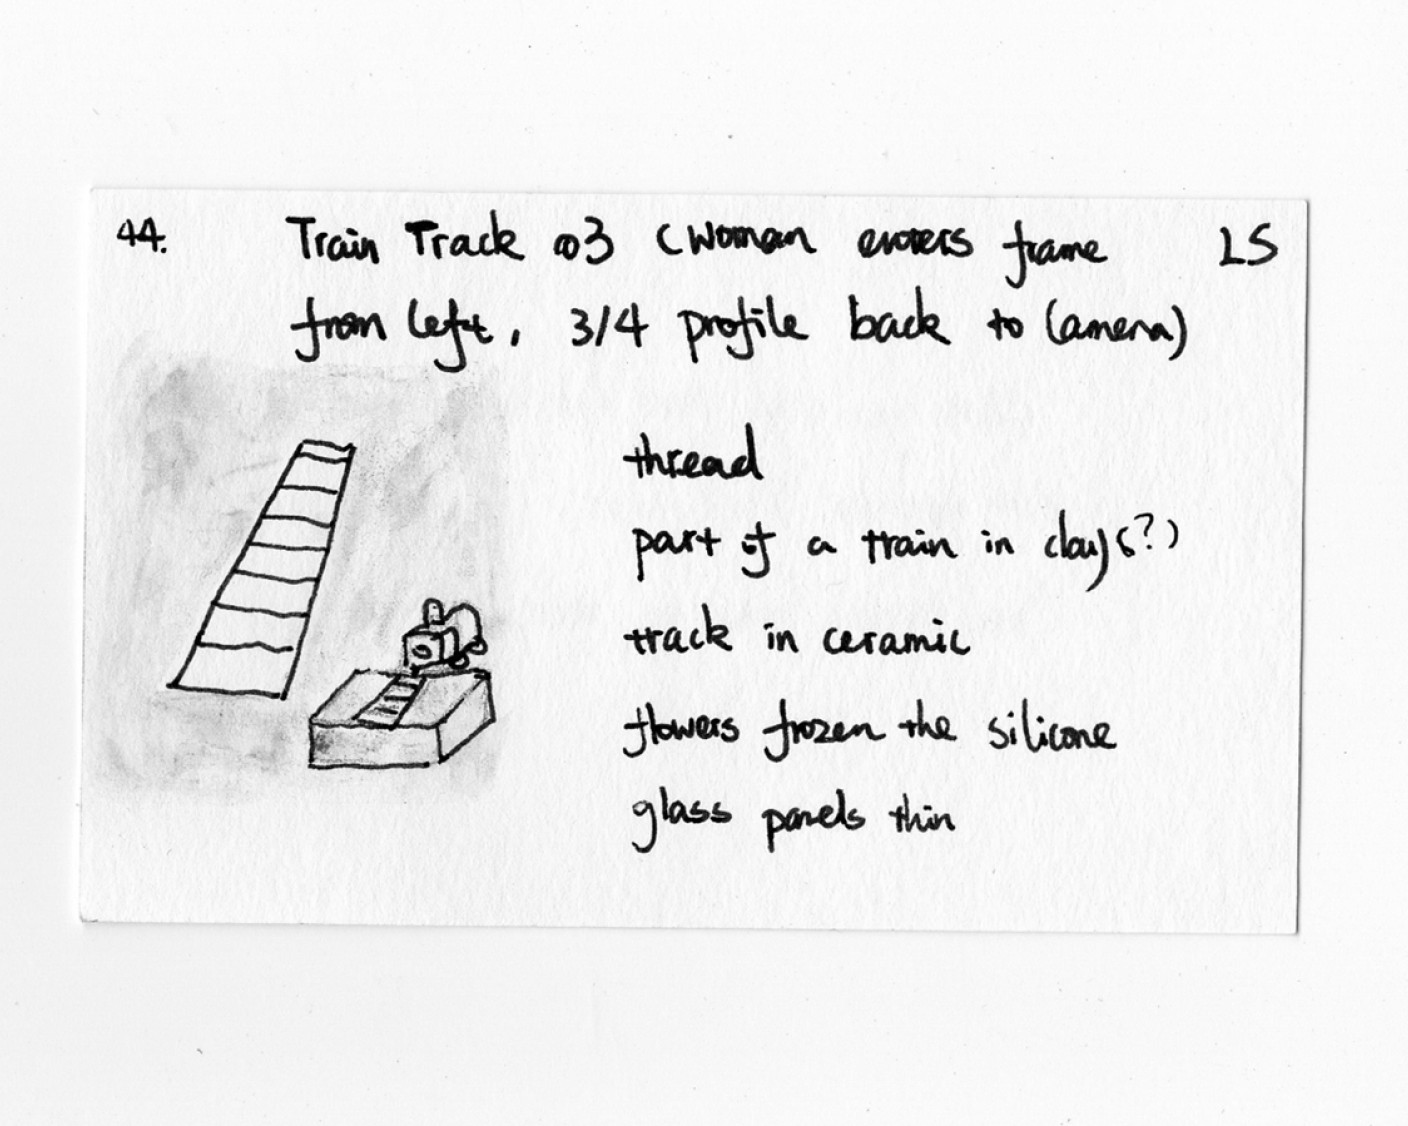 44. Train Track 03 (Woman enters frame LS
from left, 3/4 profile back to camera)
thread
part of a train in clay(?)
track in ceramic
flowers frozen the silicone
glass panels thin